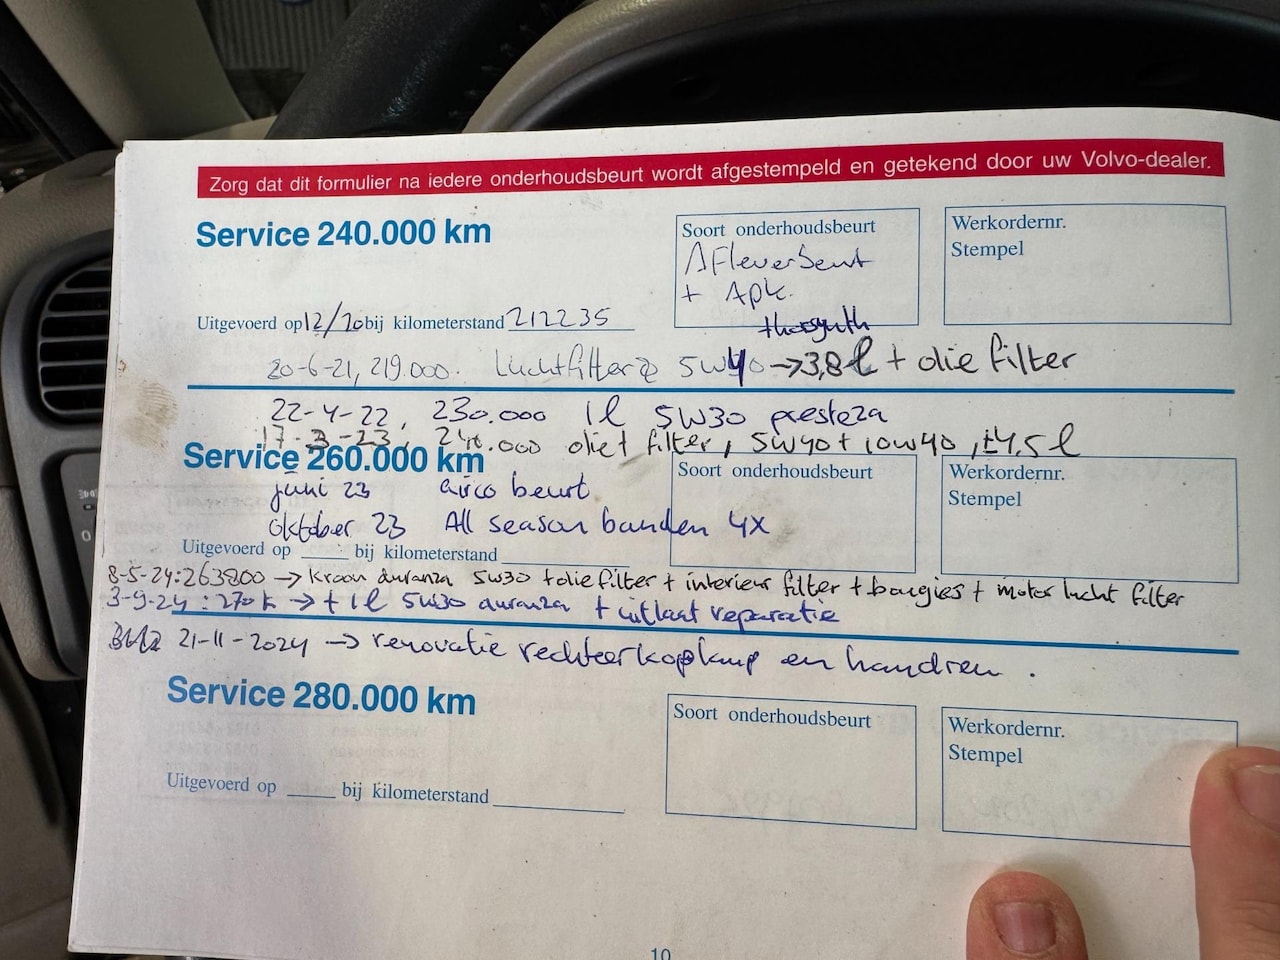 Zorg dat dit formulier na iedere onderhoudsbeurt wordt afgestempeld en getekend door uw Volvo-dealer.
Service 240.000 km
Soort onderhoudsbeurt
Afleverbeurt
+ Apk.
Werkordernr.
Stempel
Uitgevoerd op 12/20 bij kilometerstand 212235
20-6-21, 219.000. luchtfilter 5W40 → 3,8 l + olie filter
22-4-22, 230.000 1l 5W30 presteza
17-3-23, 240.000 olie + filter, 5W40 + 10W40, ±4,5 l
Service 260.000 km
Soort onderhoudsbeurt
Werkordernr.
Stempel
juni 23 airco beurt
oktober 23 All season banden 4x
Uitgevoerd op bij kilometerstand
8-5-24: 263800 → kroon duranza 5W30 + olie filter + interieur filter + bougies + motor lucht filter
3-9-24: 270k → + 1l 5W30 duranza + uitlaat reparatie
21-11-2024 → renovatie rechter koplamp en handrem.
Service 280.000 km
Soort onderhoudsbeurt
Werkordernr.
Stempel
Uitgevoerd op bij kilometerstand
10